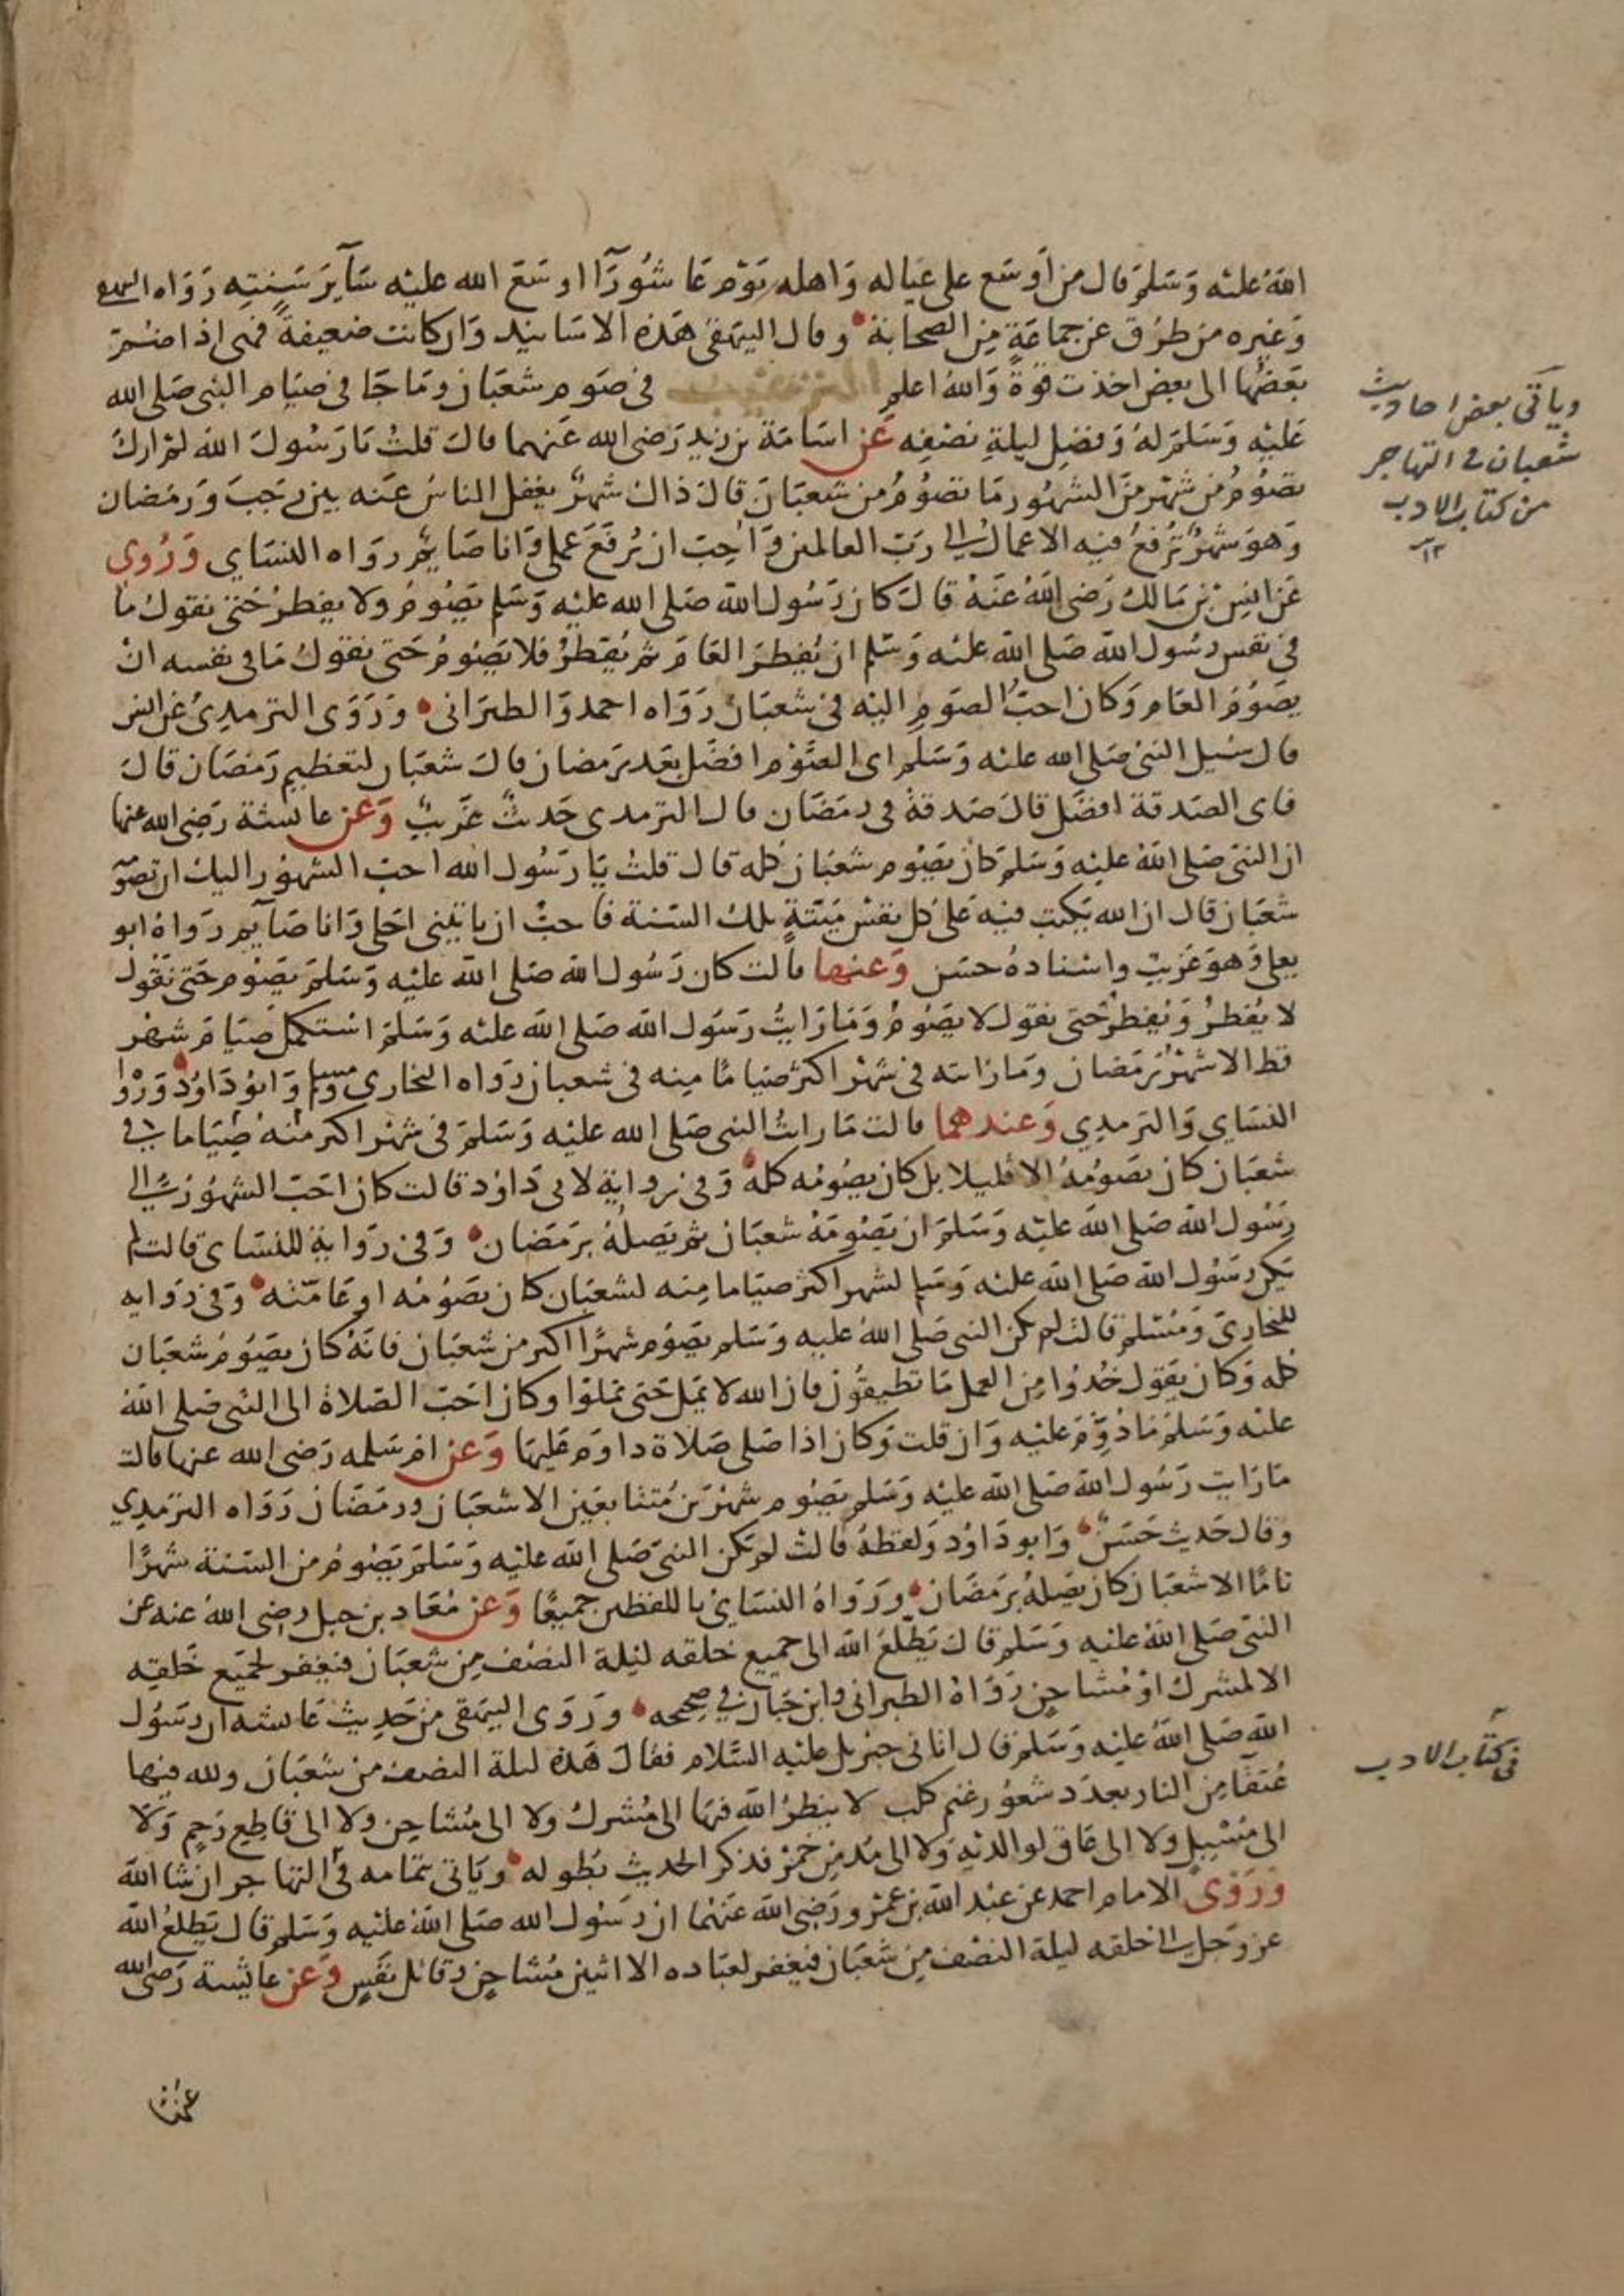 الله عليه وسلم قال من أوسع على عياله واهله يوم عاشورآ اوسع الله عليه سآير سنته رواه البيهقي
وغيره من طرق عن جماعة من الصحابة وقال البيهقي هذه الاسانيد وان كانت ضعيفة فهي اذا ضُمّ
بعضها الى بعض اخذت قوة والله اعلم الترغيب في صوم شعبان وما جا في صيام النبي صلى الله
عليه وسلم له وفضل ليلة نصفه عن اسامة بن زيد رضي الله عنهما قال قلت يا رسول الله لم ارك
تصوم من شهر من الشهور ما تصوم من شعبان قال ذاك شهر يغفل الناس عنه بين رجب ورمضان
وهو شهر تُرفع فيه الاعمال الى رب العالمين وأحب ان يُرفع عملي وانا صايم رواه النساي ورُوى
عن انس بن مالك رضي الله عنه قال كان رسول الله صلى الله عليه وسلم يصوم ولا يفطر حتى نقول ما
في نفس رسول الله صلى الله عليه وسلم ان يُفطر العام ثم يُفطر فلا يصوم حتى نقول ما في نفسه ان
يصوم العام وكان احبّ الصوم اليه في شعبان رواه احمد والطبراني وروى الترمدي عن انس
قال سُيل النبي صلى الله عليه وسلم اى الصوم افضل بعد رمضان قال شعبان لتعظيم رمضان قال
فاى الصدقة افضل قال صدقة في رمضان قال الترمدي حديث غريب وعن عائشة رضي الله عنها
ان النبي صلى الله عليه وسلم كان يصوم شعبان كله قال قلت يا رسول الله احب الشهور اليك ان تصومه
شعبان قال ان الله يكتب فيه على كل نفس ميتة تلك السنة فاحب ان ياتيني اجلي وانا صآيم رواه ابو
يعلى وهو غريب واسناده حسن وعنها قالت كان رسول الله صلى الله عليه وسلم يصوم حتى نقول
لا يُفطر ويُفطر حتى نقول لا يصوم وما رايت رسول الله صلى الله عليه وسلم استكمل صيام شهر
قط الا شهر رمضان وما رايته في شهر اكثر صياما منه في شعبان رواه البخاري ومسلم وابو داود ورواه
النساي والترمدي وعندهما قالت ما رايت النبي صلى الله عليه وسلم في شهر اكثر منه صياما في
شعبان كان يصومه الا قليلا بل كان يصومه كله وفي رواية لابي داود قالت كان احب الشهور الى
رسول الله صلى الله عليه وسلم ان يصومه شعبان ثم يصله برمضان وفي رواية للنساي قالت لم
يكن رسول الله صلى الله عليه وسلم لشهر اكثر صياما منه لشعبان كان يصومه او عامّته وفي رواية
للبخاري ومسلم قالت لم يكن النبي صلى الله عليه وسلم يصوم شهرًا اكثر من شعبان فانه كان يصوم شعبان
كله وكان يقول خُدُوا من العمل ما تطيقون فان الله لا يمل حتى تملوا وكان احب الصلاة الى النبي صلى الله
عليه وسلم ما دُووم عليه وان قلت وكان اذا صلى صلاة داوم عليها وعن ام سلمه رضي الله عنها قالت
ما رايت رسول الله صلى الله عليه وسلم يصوم شهرين مُتتابعين الا شعبان ورمضان رواه الترمدي
وقال حديث حسن وابو داود ولفظه قالت لم يكن النبي صلى الله عليه وسلم يصوم من السنة شهرًا
تامًا الا شعبان كان يصله برمضان ورواه النساي باللفظين جميعًا وعن مُعاد بن جبل رضي الله عنه عن
النبي صلى الله عليه وسلم قال يَطّلع الله الى جميع خلقه ليلة النصف من شعبان فيغفر لجميع خلقه
الا لمشرك او مُشاحن رواه الطبراني وابن حبان في صحيحه وروى البيهقي من حديث عايشه ان رسول
الله صلى الله عليه وسلم قال اتاني جبريل عليه السلام فقال هذه ليلة النصف من شعبان ولله فيها
عُتقآ من النار بعدد شعور غنم كلب لا ينظر الله فيها الى مُشرك ولا الى مُشاحن ولا الى قاطع رحم ولا
الى مُسبل ولا الى عاق لوالديه ولا الى مُدمن خمر فذكر الحديث بطوله وياتي بتمامه في التهاجر ان شا الله
وروى الامام احمد عن عبد الله بن عمرو رضي الله عنهما ان رسول الله صلى الله عليه وسلم قال يَطلع الله
عز وجل الى خلقه ليلة النصف من شعبان فيغفر لعباده الا اثنين مُشاحن وقاتل نفس وعن عايشة رضي الله
عنها
وياتي بعض احاديث
شعبان في التهاجر
من كتاب الادب
١٢
في كتاب الادب